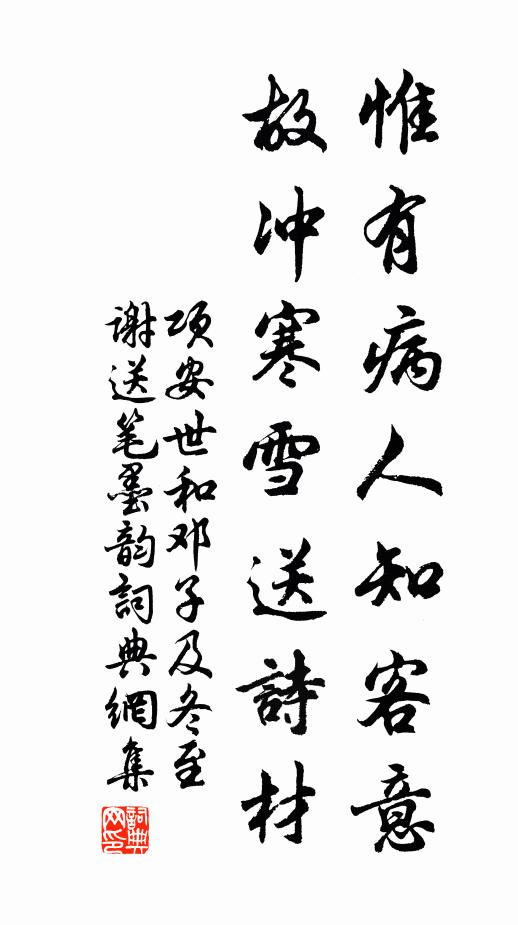 惟有病人知客意
故冲寒雪送詩材
项安世和邓子及冬至
谢送笔墨韵詞典網集
詞典網印